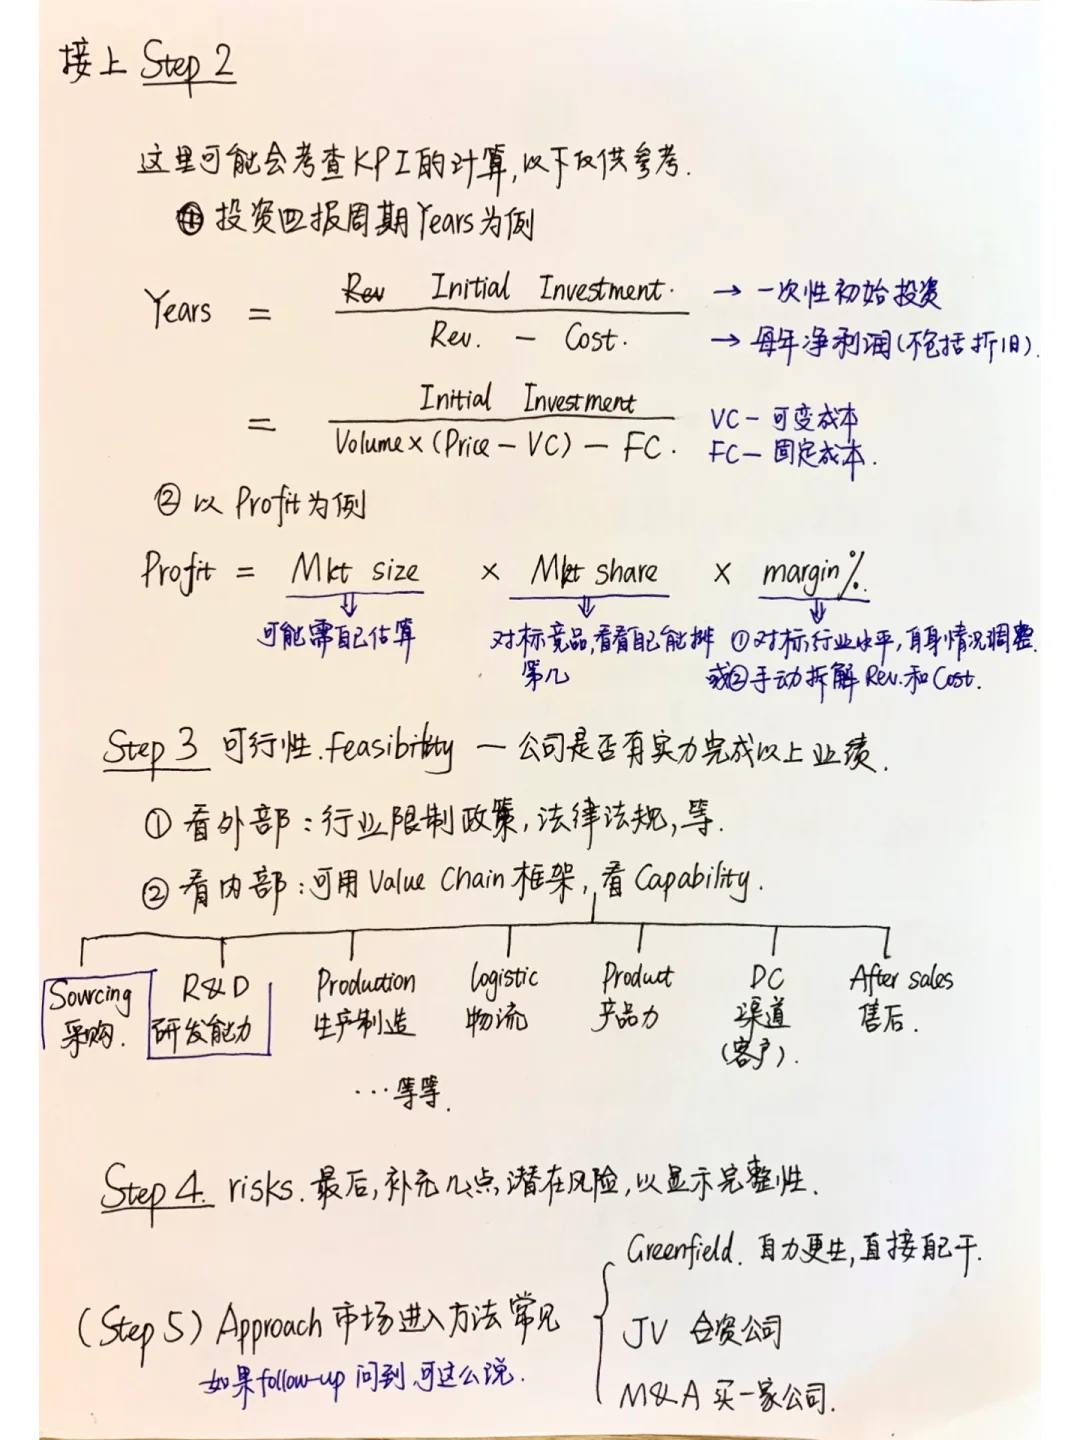 接上 Step 2
这里可能会考查KPI的计算,以下仅供参考.
① 投资回报周期Years为例
Years = Initial Investment. / Rev. - Cost.
→ 一次性初始投资
→ 每年净利润(不包括折旧).
= Initial Investment / Volume × (Price - VC) - FC.
VC - 可变成本
FC - 固定成本.
② 以 Profit为例
Profit = Mkt size × Mkt share × margin%.
可能需自己估算
对标竞品,看看自己能排第几
①对标行业水平,自身情况调整.
或②手动拆解 Rev.和Cost.
Step 3 可行性.feasibility — 公司是否有实力完成以上业绩.
① 看外部:行业限制政策,法律法规,等.
② 看内部:可用Value Chain框架,看Capability.
Sourcing 采购.
R&D 研发能力
Production 生产制造
Logistic 物流
Product 产品力
DC 渠道 (客户).
After sales 售后.
…等等.
Step 4. risks.最后,补充几点,潜在风险,以显示完整性.
(Step 5) Approach 市场进入方法常见
如果follow-up 问到,可这么说.
Greenfield. 自力更生,直接自己干.
JV 合资公司
M&A 买一家公司.